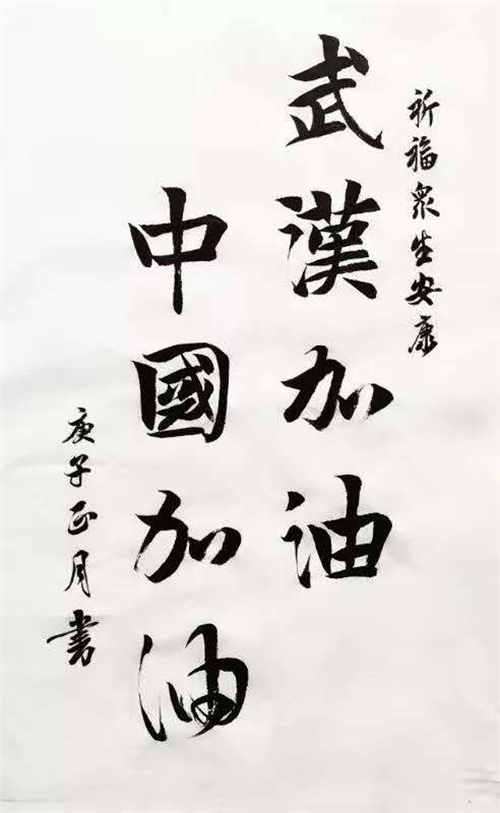 祈福眾生安康
武漢加油
中國加油
庚子正月書